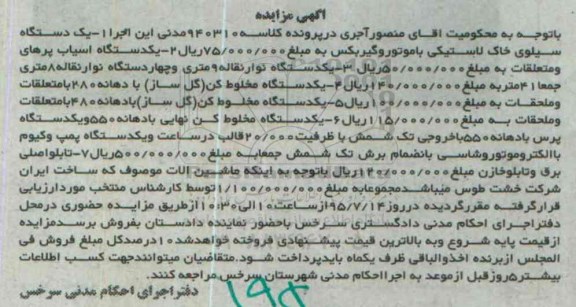 آگهی مزایده
باتوجه به محکومیت آقای منصور آجری در پرونده کلاسه ۹۴۰۳۱۰ مدنی این اجرا ۱-یک دستگاه
سیلوی خاک لاستیکی باموتوروگیربکس به مبلغ ۷۵/۰۰۰/۰۰۰ ریال ۲-یکدستگاه آسیاب پرهای
ومتعلقات به مبلغ ۵۰/۰۰۰/۰۰۰ ریال ۳-یکدستگاه نوارنقاله ۹متری وچهاردستگاه نوارنقاله ۸متری
جمعا ۴۱متر به مبلغ ۱۴۰/۰۰۰/۰۰۰ ریال ۴-یکدستگاه مخلوط کن(گل ساز) با دهانه ۲۸۰ بامتعلقات
وملحقات به مبلغ ۱۰۰/۰۰۰/۰۰۰ ریال ۵-یکدستگاه مخلوط کن(گل ساز)بادهانه ۴۸۰ بامتعلقات
وملحقات به مبلغ ۱۱۵/۰۰۰/۰۰۰ ریال ۶-یکدستگاه مخلوط کن نهایی بادهانه ۵۵۰ ویکدستگاه
پرس بادهانه ۵۵۰ باخروجی تک شمش با ظرفیت ۲۰/۰۰۰ قالب درساعت ویکدستگاه پمپ وکیوم
باالکتروموتوروشاسی بانضمام برش تک شمش جمعابه مبلغ ۵۰۰/۰۰۰/۰۰۰ ریال ۷-تابلواصلی
برق وتابلوخازن مبلغ ۱۲۰/۰۰۰/۰۰۰ ریال باتوجه به اینکه ماشین آلات موصوف که ساخت ایران
شرکت خشت طوس میباشدمجموعابه مبلغ ۱/۱۰۰/۰۰۰/۰۰۰ توسط کارشناس منتخب موردارزیابی
قرارگرفته مقررگردیده درروز ۹۵/۷/۱۴ ازساعت ۱۰ الی ۱۰:۳۰ ازطریق مزایده حضوری درمحل
دفتراجرای احکام مدنی دادگستری سرخس باحضور نماینده دادستان بفروش برسدمزایده
ازقیمت پایه شروع وبه بالاترین قیمت پیشنهادی فروخته خواهدشد ۱۰ درصدکل مبلغ فروش فی
المجلس ازبرنده اخذوالباقی ظرف یکماه بایدپرداخت شود.متقاضیان میتوانندجهت کسب اطلاعات
بیشتر ۵ روزقبل ازموعد به اجرااحکام مدنی شهرستان سرخس مراجعه کنند.
دفتراجرای احکام مدنی سرخس